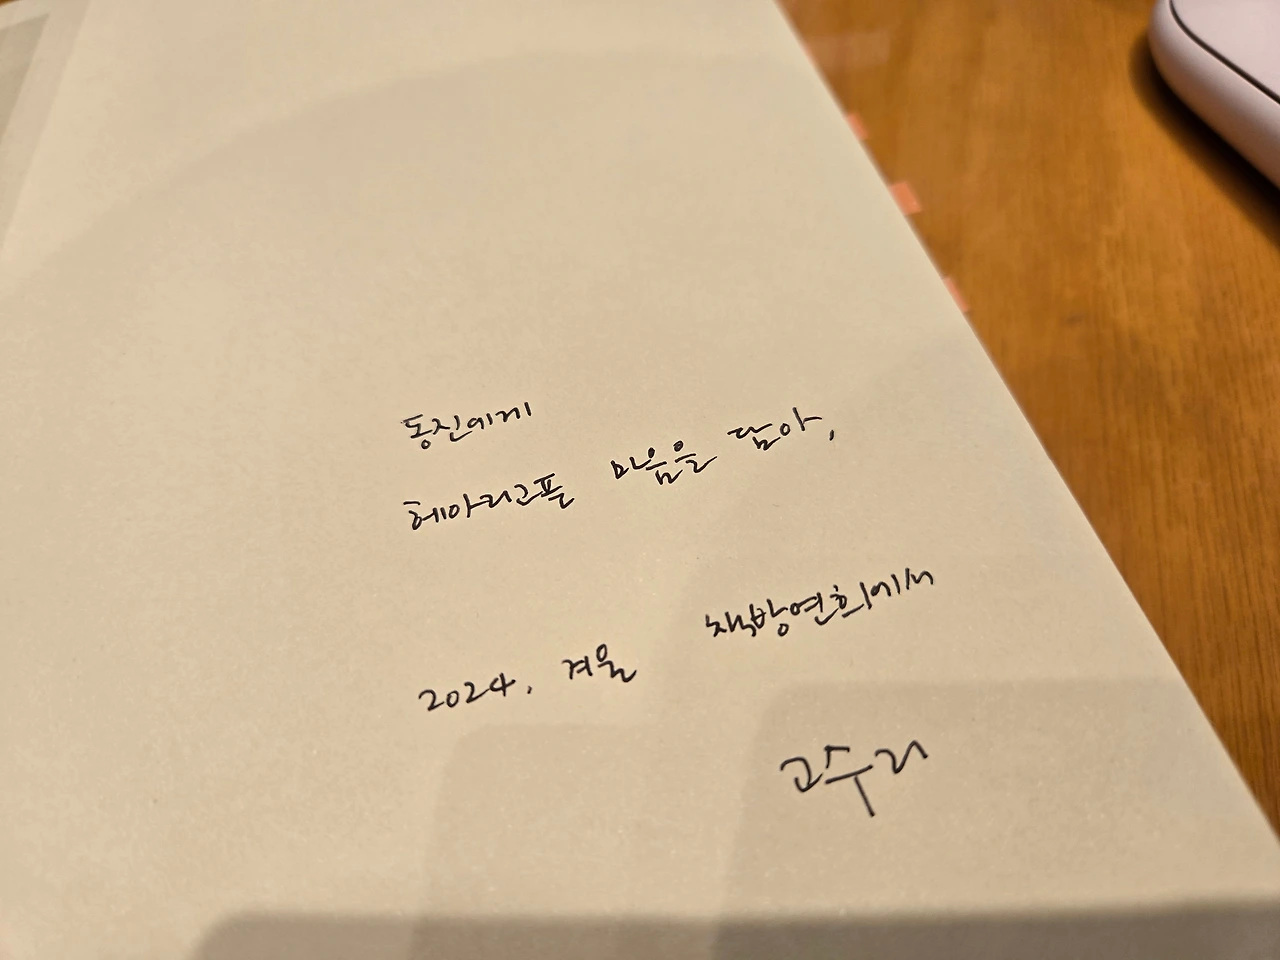 동진에게
헤아리고픈 마음을 담아,
책방연희에서
2024. 겨울
고수리